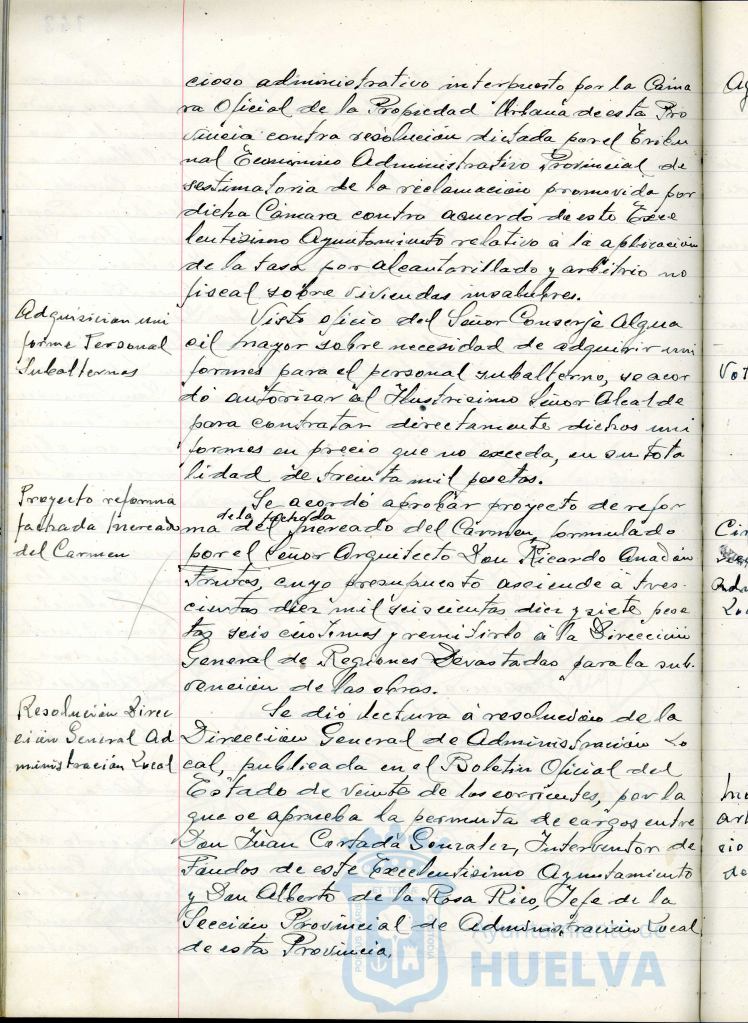 cioso administrativo interpuesto por la Cáma
ra Oficial de la Propiedad Urbana de esta Pro
vincia contra resolución dictada por el Tribu
nal Económico Administrativo Provincial de
sestimatoria de la reclamación promovida por
dicha Cámara contra acuerdo de este Exce
lentísimo Ayuntamiento relativo á la aplicación
de la tasa por alcantarillado y arbitrio no
fiscal sobre viviendas insalubres.
Adquisicion uni
forme Personal
Subalternos
Visto oficio del Señor Conserje Algua
cil mayor sobre necesidad de adquirir uni
formes para el personal subalterno, se acor
dó autorizar al Ilustrisimo Señor Alcalde
para contratar directamente dichos uni
formes en precio que no exceda, en su tota
lidad de treinta mil pesetas.
Proyecto reforma
fachada Mercado
del Carmen
Se acordó aprobar proyecto de refor
de la fachada
ma del Mercado del Carmen, formulado
por el Señor Arquitecto Don Ricardo Anadón
Frutos, cuyo presupuesto asciende á tres
cientas diez mil seiscientas diez y siete pese
tas seis céntimos y remitirlo á la Dirección
General de Regiones Devastadas para la sub
vención de las obras.
Resolución Direc
ción General Ad
ministración Local
Se dió lectura á resolución de la
Dirección General de Administración Lo
cal, publicada en el Boletin Oficial del
Estado de veinte de los corrientes, por la
que se aprueba la permuta de cargos entre
Don Juan Cortada Gonzalez, Interventor de
Fondos de este Excelentisimo Ayuntamiento
y Don Alberto de la Rosa Rico, Jefe de la
Sección Provincial de Administración Local
de esta Provincia.
Ayuntamiento de
HUELVA